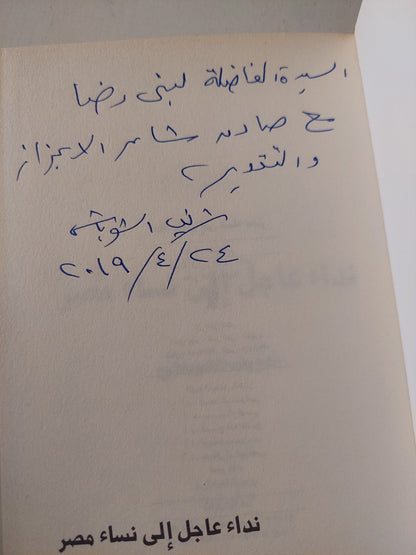 السيدة الفاضلة لبنى رضا
مع صادق مشاعر الاعزاز
والتقدير،
شريف الشوباشى
٢٠١٩/٤/٢٤
نداء عاجل إلى نساء مصر